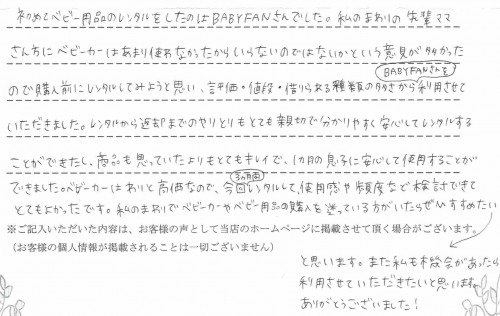 初めてベビー用品のレンタルをしたのはBABYFANさんでした。私のまわりの先輩ママ
さんたちにベビーカーはあまり使わなかったからいらないのではないかという意見が多かった
ので購入前にレンタルしてみようと思い、評価・値段・借りられる種類の多さからBABYFANさんを利用させて
いただきました。レンタルから返却までのやりとりもとても親切で分かりやすく安心してレンタルする
ことができたし、商品も思っていたよりもとてもキレイで、1カ月の息子に安心して使用することが
できました。ベビーカーはわりと高価なので、今回3ヶ月間レンタルして、使用感や頻度など検討できて
とてもよかったです。私のまわりでベビーカーやベビー用品の購入を迷っている方がいたらぜひすすめたい
※ご記入いただいた内容は、お客様の声として当店のホームページに掲載させて頂く場合がございます。
(お客様の個人情報が掲載されることは一切ございません)
と思います。また私も機会があったら
利用させていただきたいと思います。
ありがとうございました!